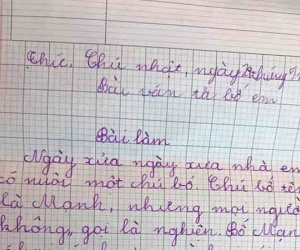 Thứ. Chủ nhật, ngày tháng
Bài văn tả bố em
Bài làm
Ngày xửa ngày xưa nhà em
có nuôi một chú bó. Chú bố tên
là Mạnh, nhưng mọi người
không gọi là nghiên. Bố Mạn